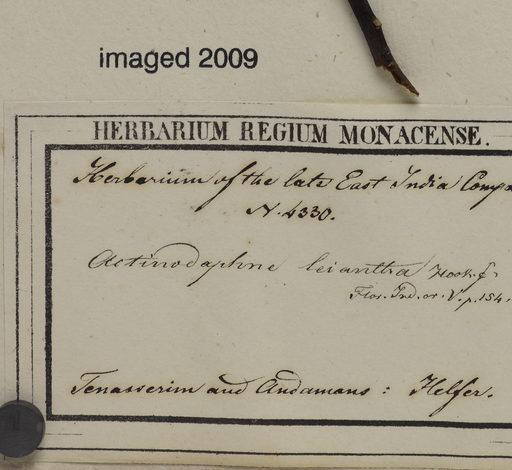 imaged 2009
HERBARIUM REGIUM MONACENSE.
Herbarium of the late East India Compa
N. 4330.
Actinodaphne leiantha Hook. f.
Flor. Ind. or. V. p. 154.
Tenasserim and Andamans : Helfer.